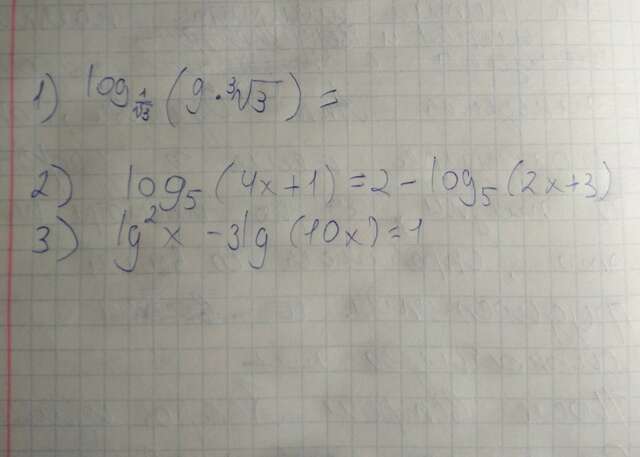 1) log_{1/√3} (9·∛3) =
2) log₅ (4x+1) = 2 - log₅ (2x+3)
3) lg²x - 3lg (10x) = 1